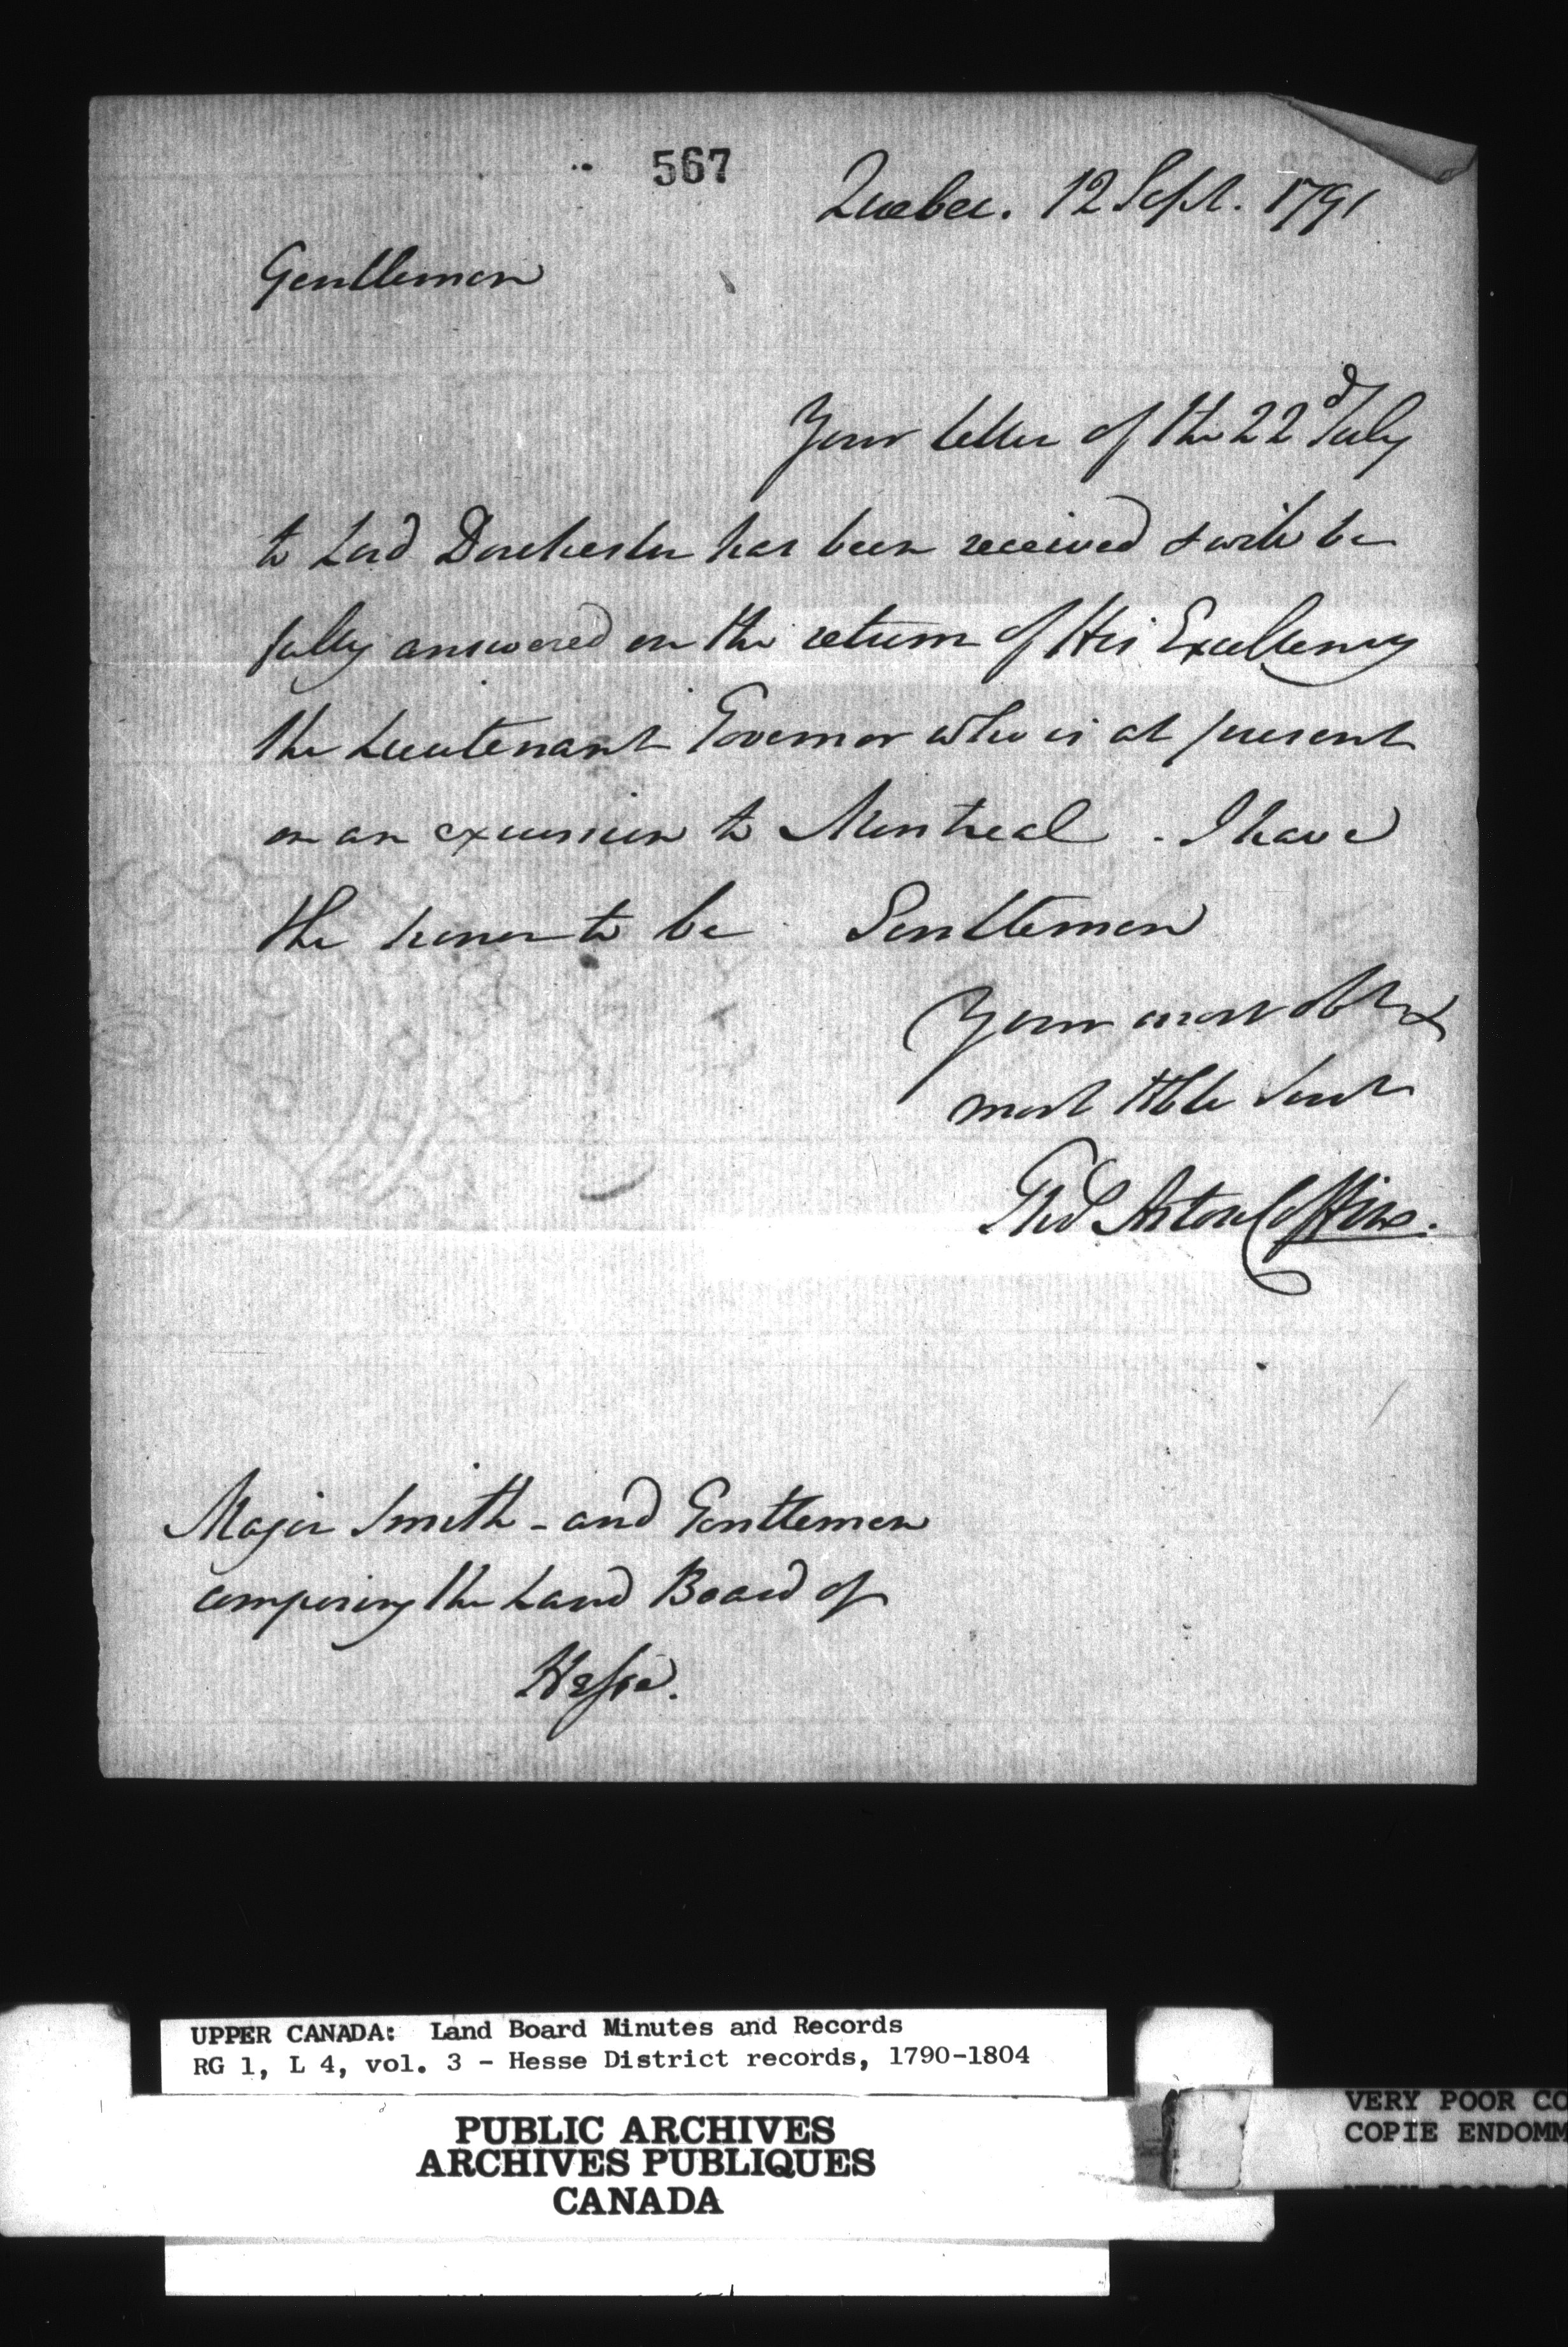 567
Quebec. 12 Sept. 1791
Gentlemen
Your letter of the 22d July
to Lord Dorchester has been received & will be
fully answered on the return of His Excellency
the Lieutenant Governor who is at present
on an excursion to Montreal. I have
the honor to be Gentlemen
Your most obt &
most Hble Servt
Thos Aston Coffin.
Major Smith - and Gentlemen
composing the Land Board of
Hesse.
UPPER CANADA: Land Board Minutes and Records
RG 1, L 4, vol. 3 - Hesse District records, 1790-1804
PUBLIC ARCHIVES
ARCHIVES PUBLIQUES
CANADA
VERY POOR CO
COPIE ENDOMM